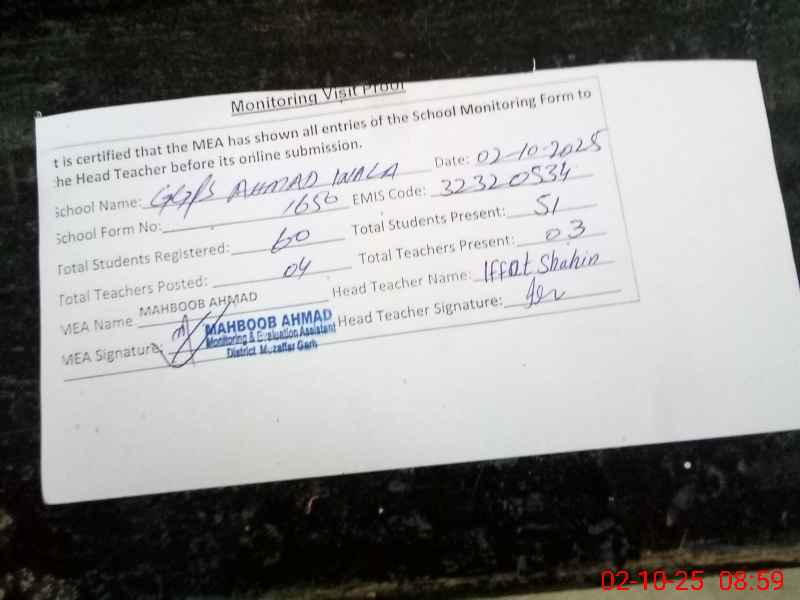 Monitoring Visit Proof
t is certified that the MEA has shown all entries of the School Monitoring Form to
he Head Teacher before its online submission.
School Name: GGPS AHMAD WALA Date: 02-10-2025
School Form No: 1650 EMIS Code: 32320534
Total Students Registered: 60 Total Students Present: 51
Total Teachers Posted: 04 Total Teachers Present: 03
MEA Name MAHBOOB AHMAD Head Teacher Name: Iffat Shahin
MEA Signature: Head Teacher Signature:
MAHBOOB AHMAD
Monitoring & Evaluation Assistant
District Muzaffar Garh
02-10-25 08:59